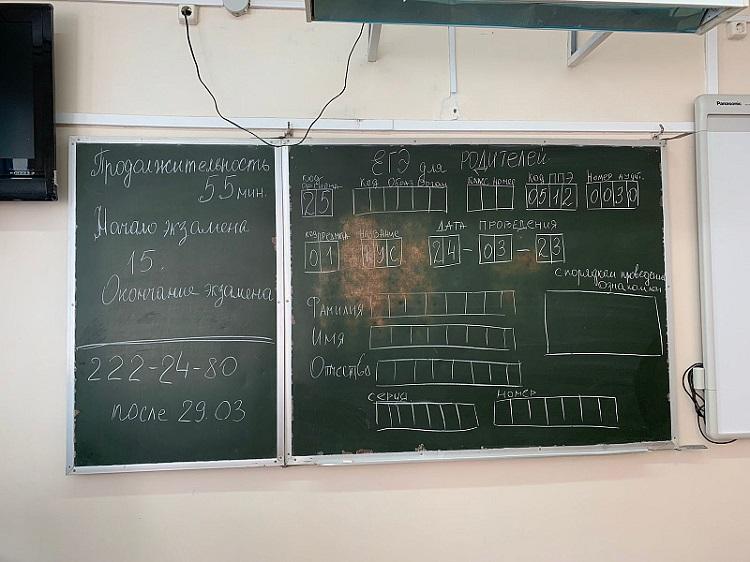 Продолжительность
55 мин.
Начало экзамена
15.
Окончание экзамена
222-24-80
после 29.03
ЕГЭ для РОДИТЕЛЕЙ
код региона код образ. орган. класс номер код ППЭ номер аудит.
25 0512 0030
код предмета название дата проведения
01 РУС 24-03-23
с порядком проведения
ознакомлен
Фамилия
Имя
Отчество
серия номер
Panasonic